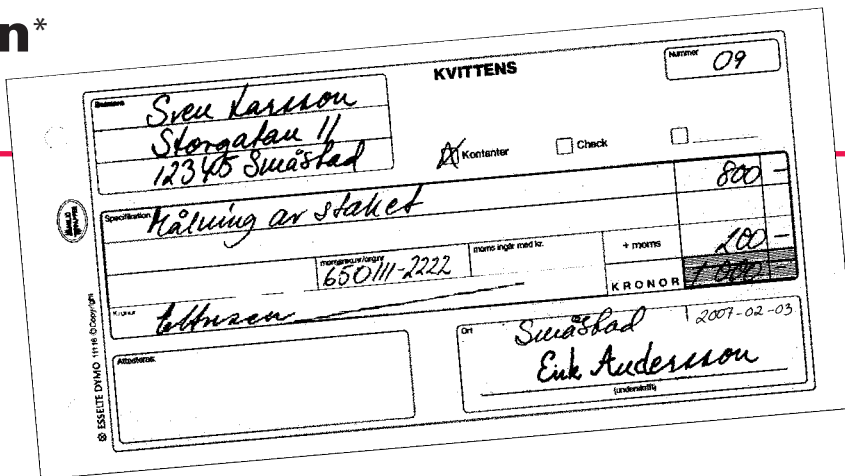 n*
KVITTENS
Nummer 09
Sven Larsson
Storgatan 11
12345 Småstad
Kontanter
Check
Specifikation
Målning av staket
800 –
momsreg.nr/org.nr
650111-2222
moms ingår med kr.
+ moms
200 –
KRONOR
1 000 –
Kronor
Ettusen
Attesteras:
Ort
Småstad
2007-02-03
Erik Andersson
(underskrift)
ESSELTE DYMO 11116 © Copyright